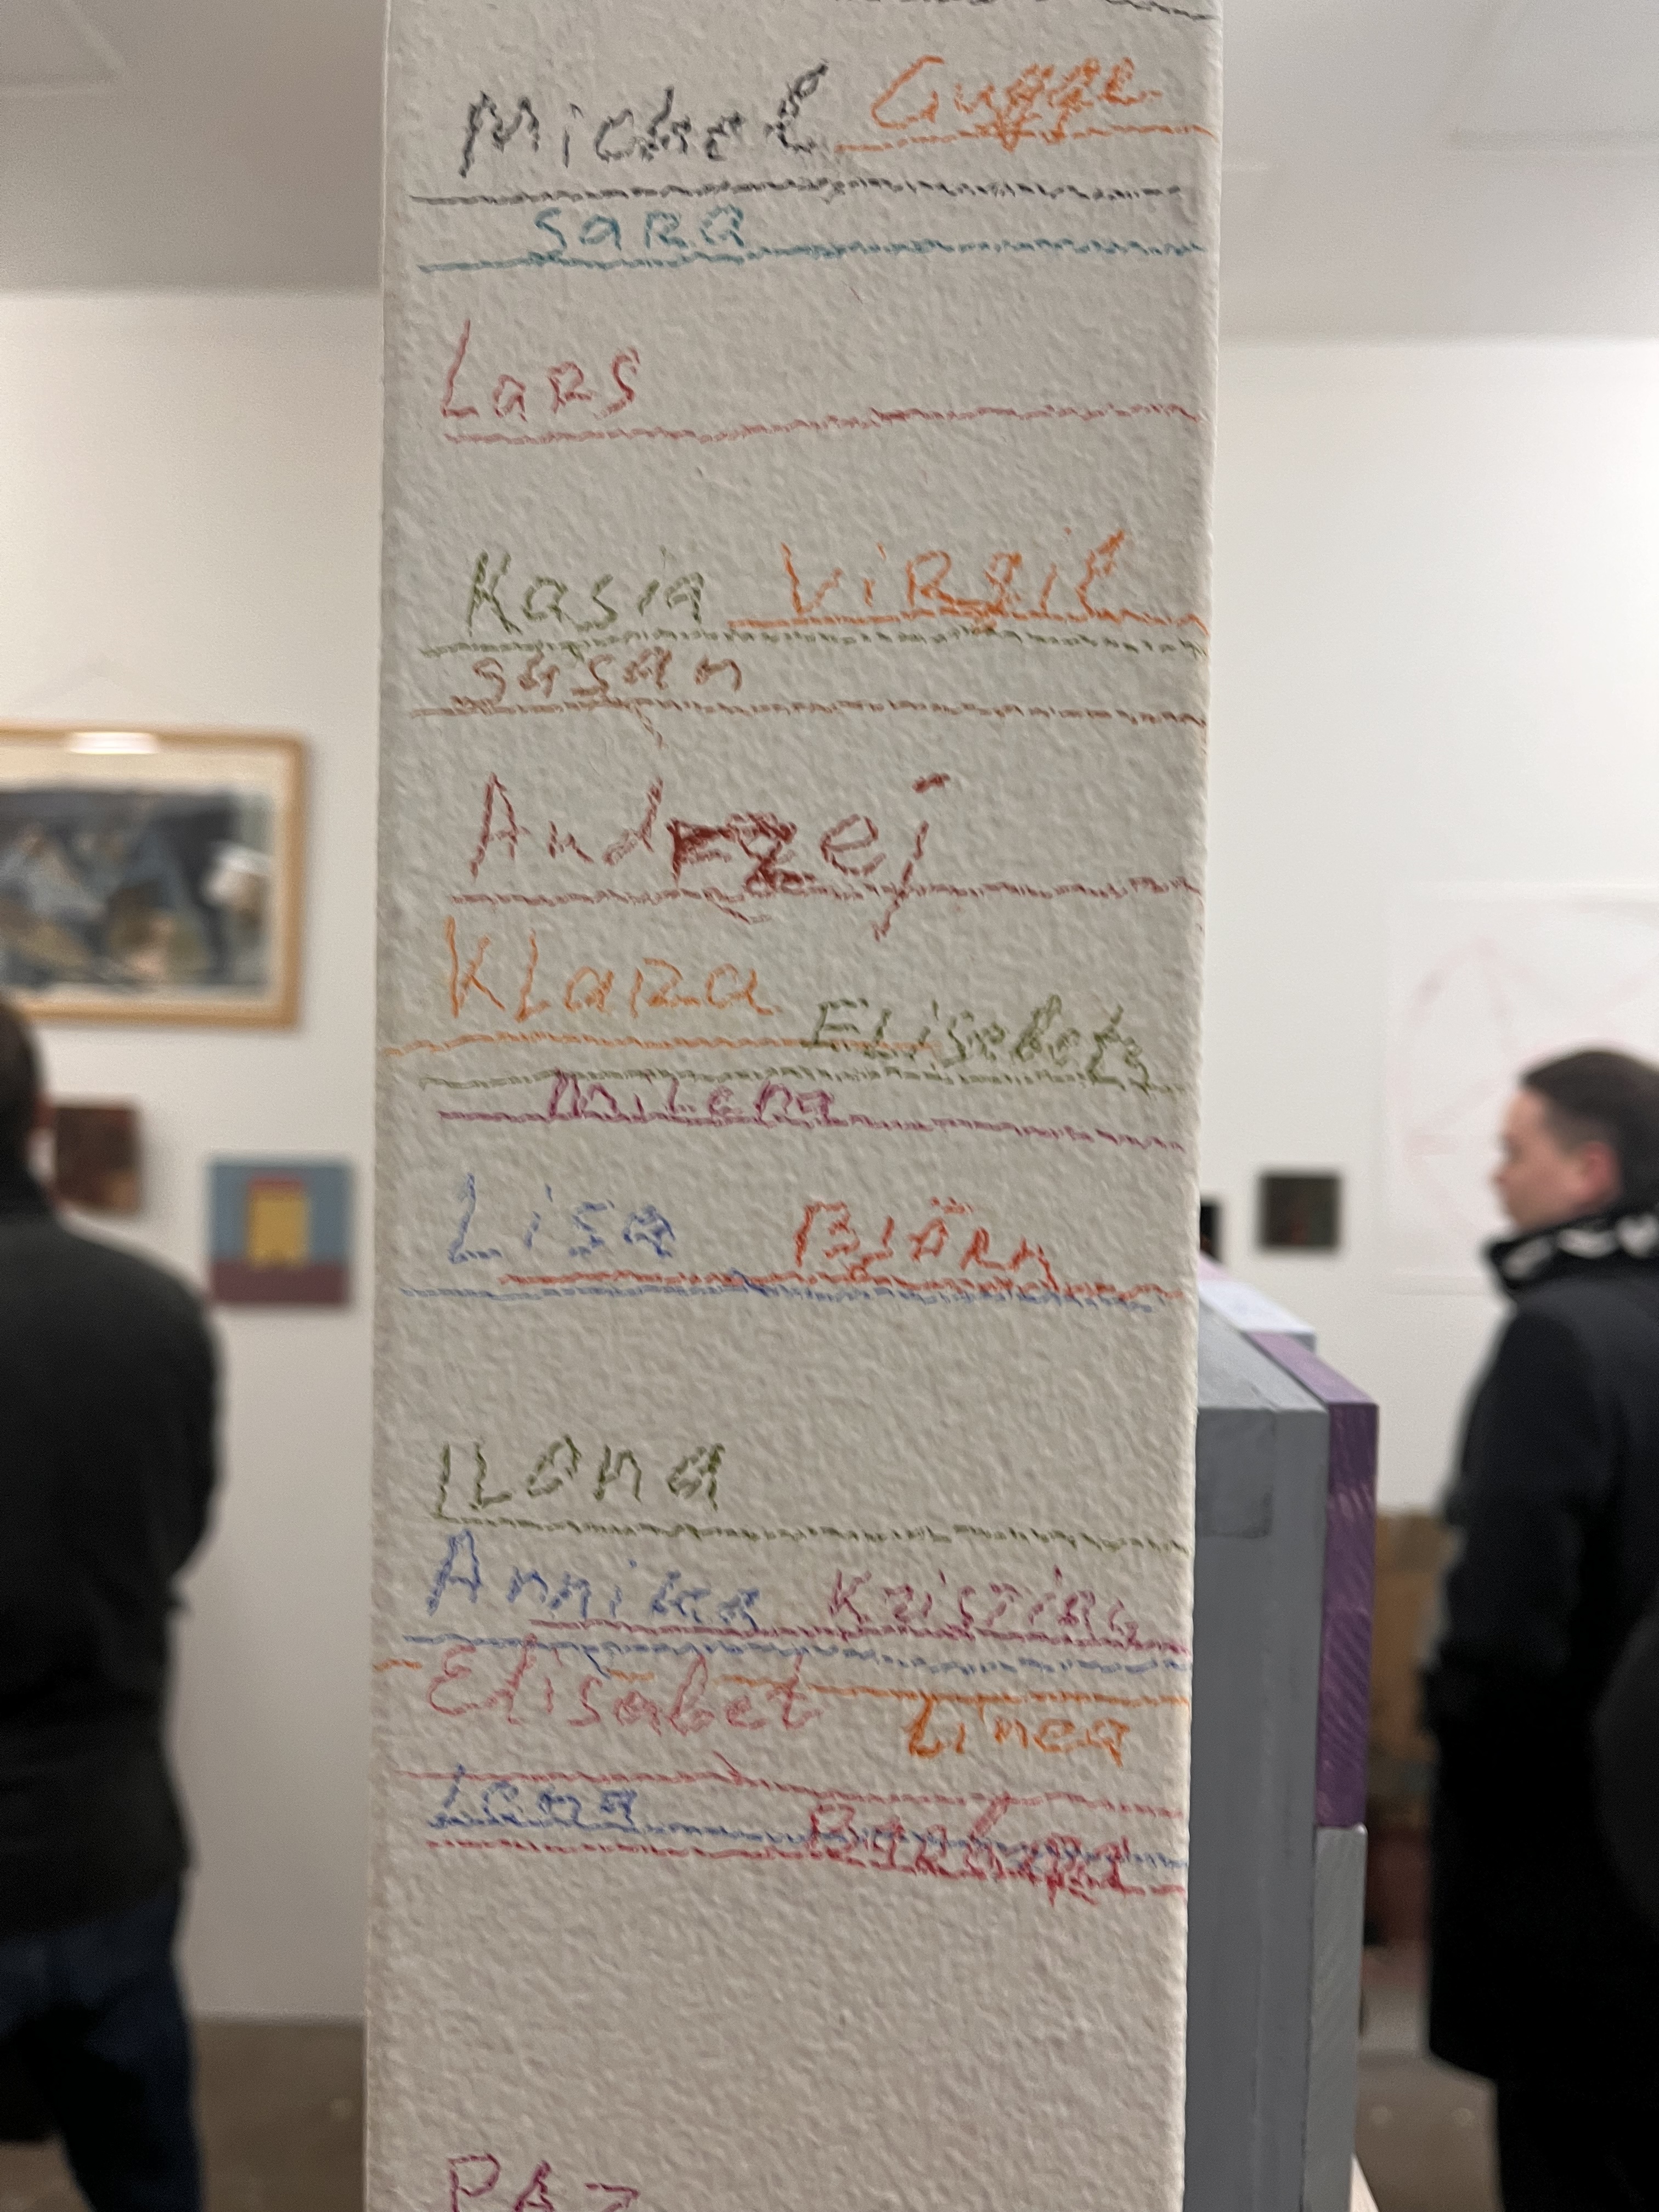 Michael Gugge
Sara
Lars
Kasia Virgil
Susan
Andrzej
KLara
Elisabets
Milena
Lisa Björn
ILona
Annika Kristina
Elisabet Linea
Lena Barbara
PAZ